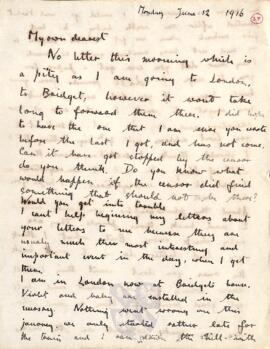 Monday June 12 1916
27
My own dearest
No letter this morning which is
a pity as I am going to London,
to Bridget, however it wont take
long to forward them there. I did hope
to have the one that I am sure you wrote
before the last I got, and has not come.
Can it have got stopped by the censor
do you think. Do you know what
would happen if the censor did find
something that should not be there?
Would you get into trouble
I cant help beginning my letters about
your letters to me because they are
usually much the most interesting and
important event in the day, when I get
them.
I am in London now at Bridgets house.
Violet and baby are installed in the
nursery. Nothing went wrong on the
journey we only started rather late for
the train and I